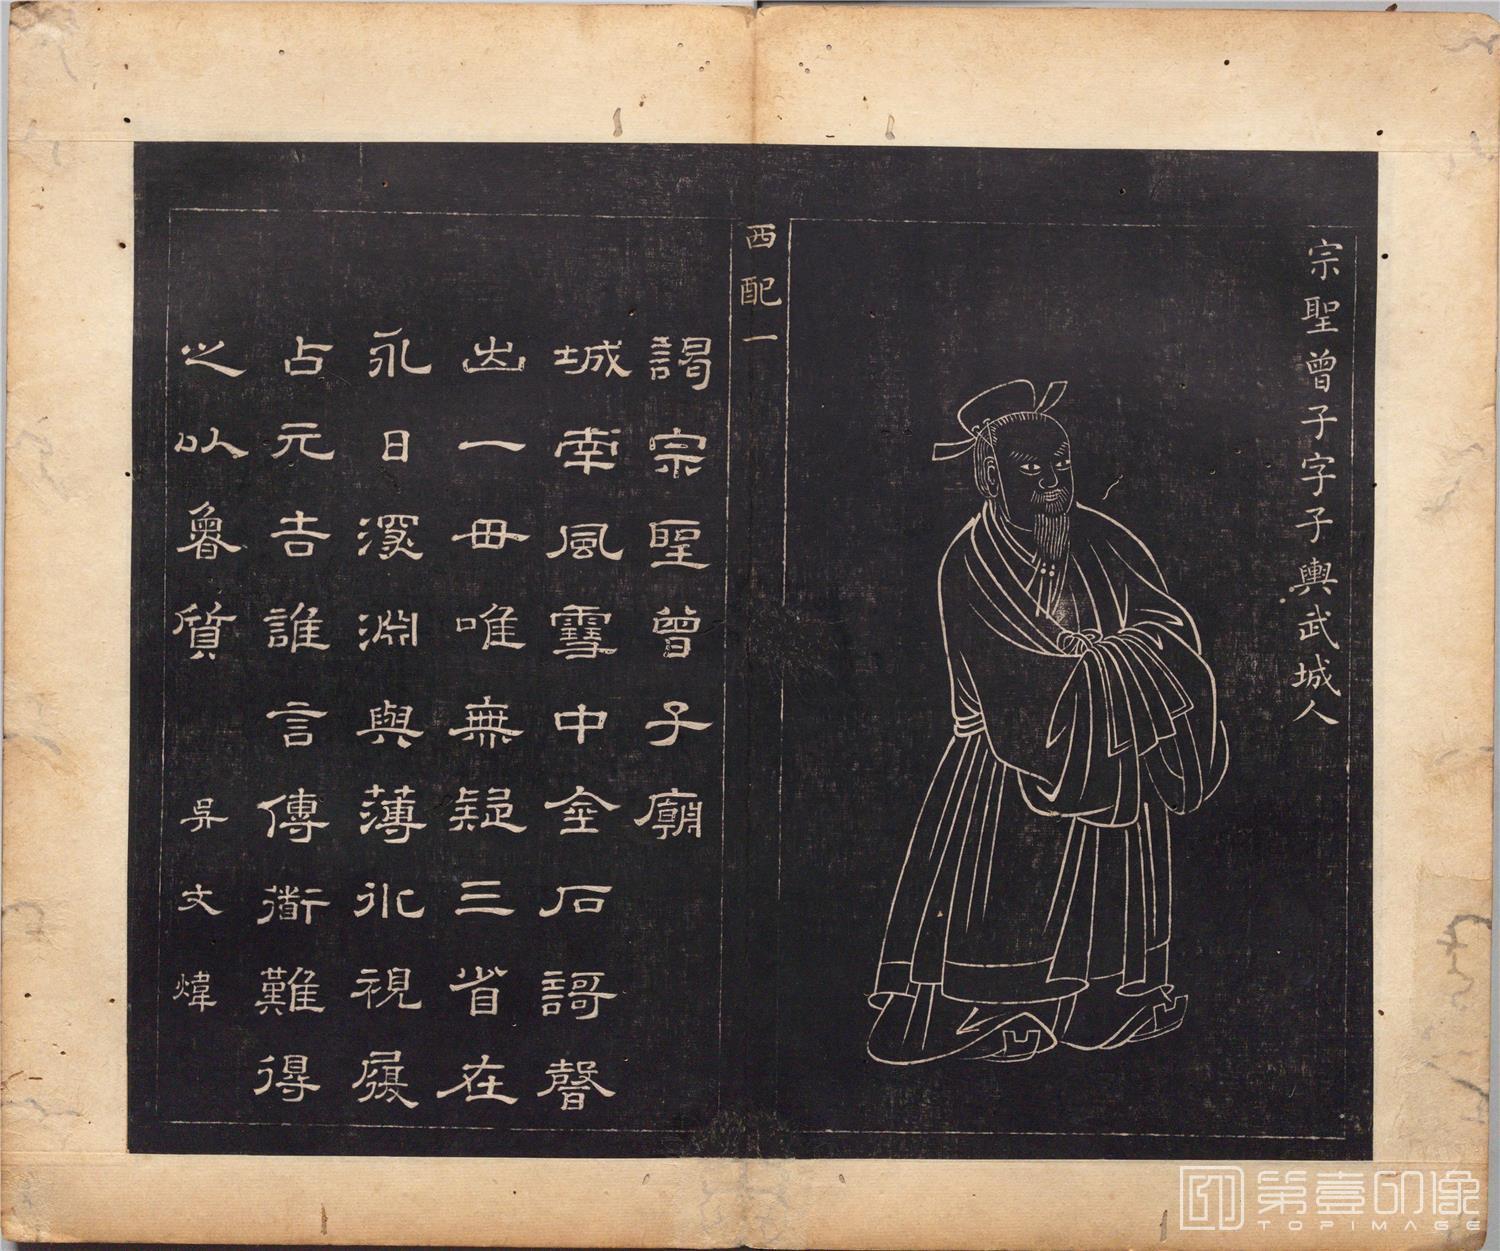 宗聖曾子字子輿武城人
西配一
謁宗聖曾子廟
城南風雪中金石謌聲
出一毌唯無疑三省在
永日深淵與薄冰視履
占元吉誰言傳衟難得
之以魯質 吳文煒
第壹印像
TOPIMAGE